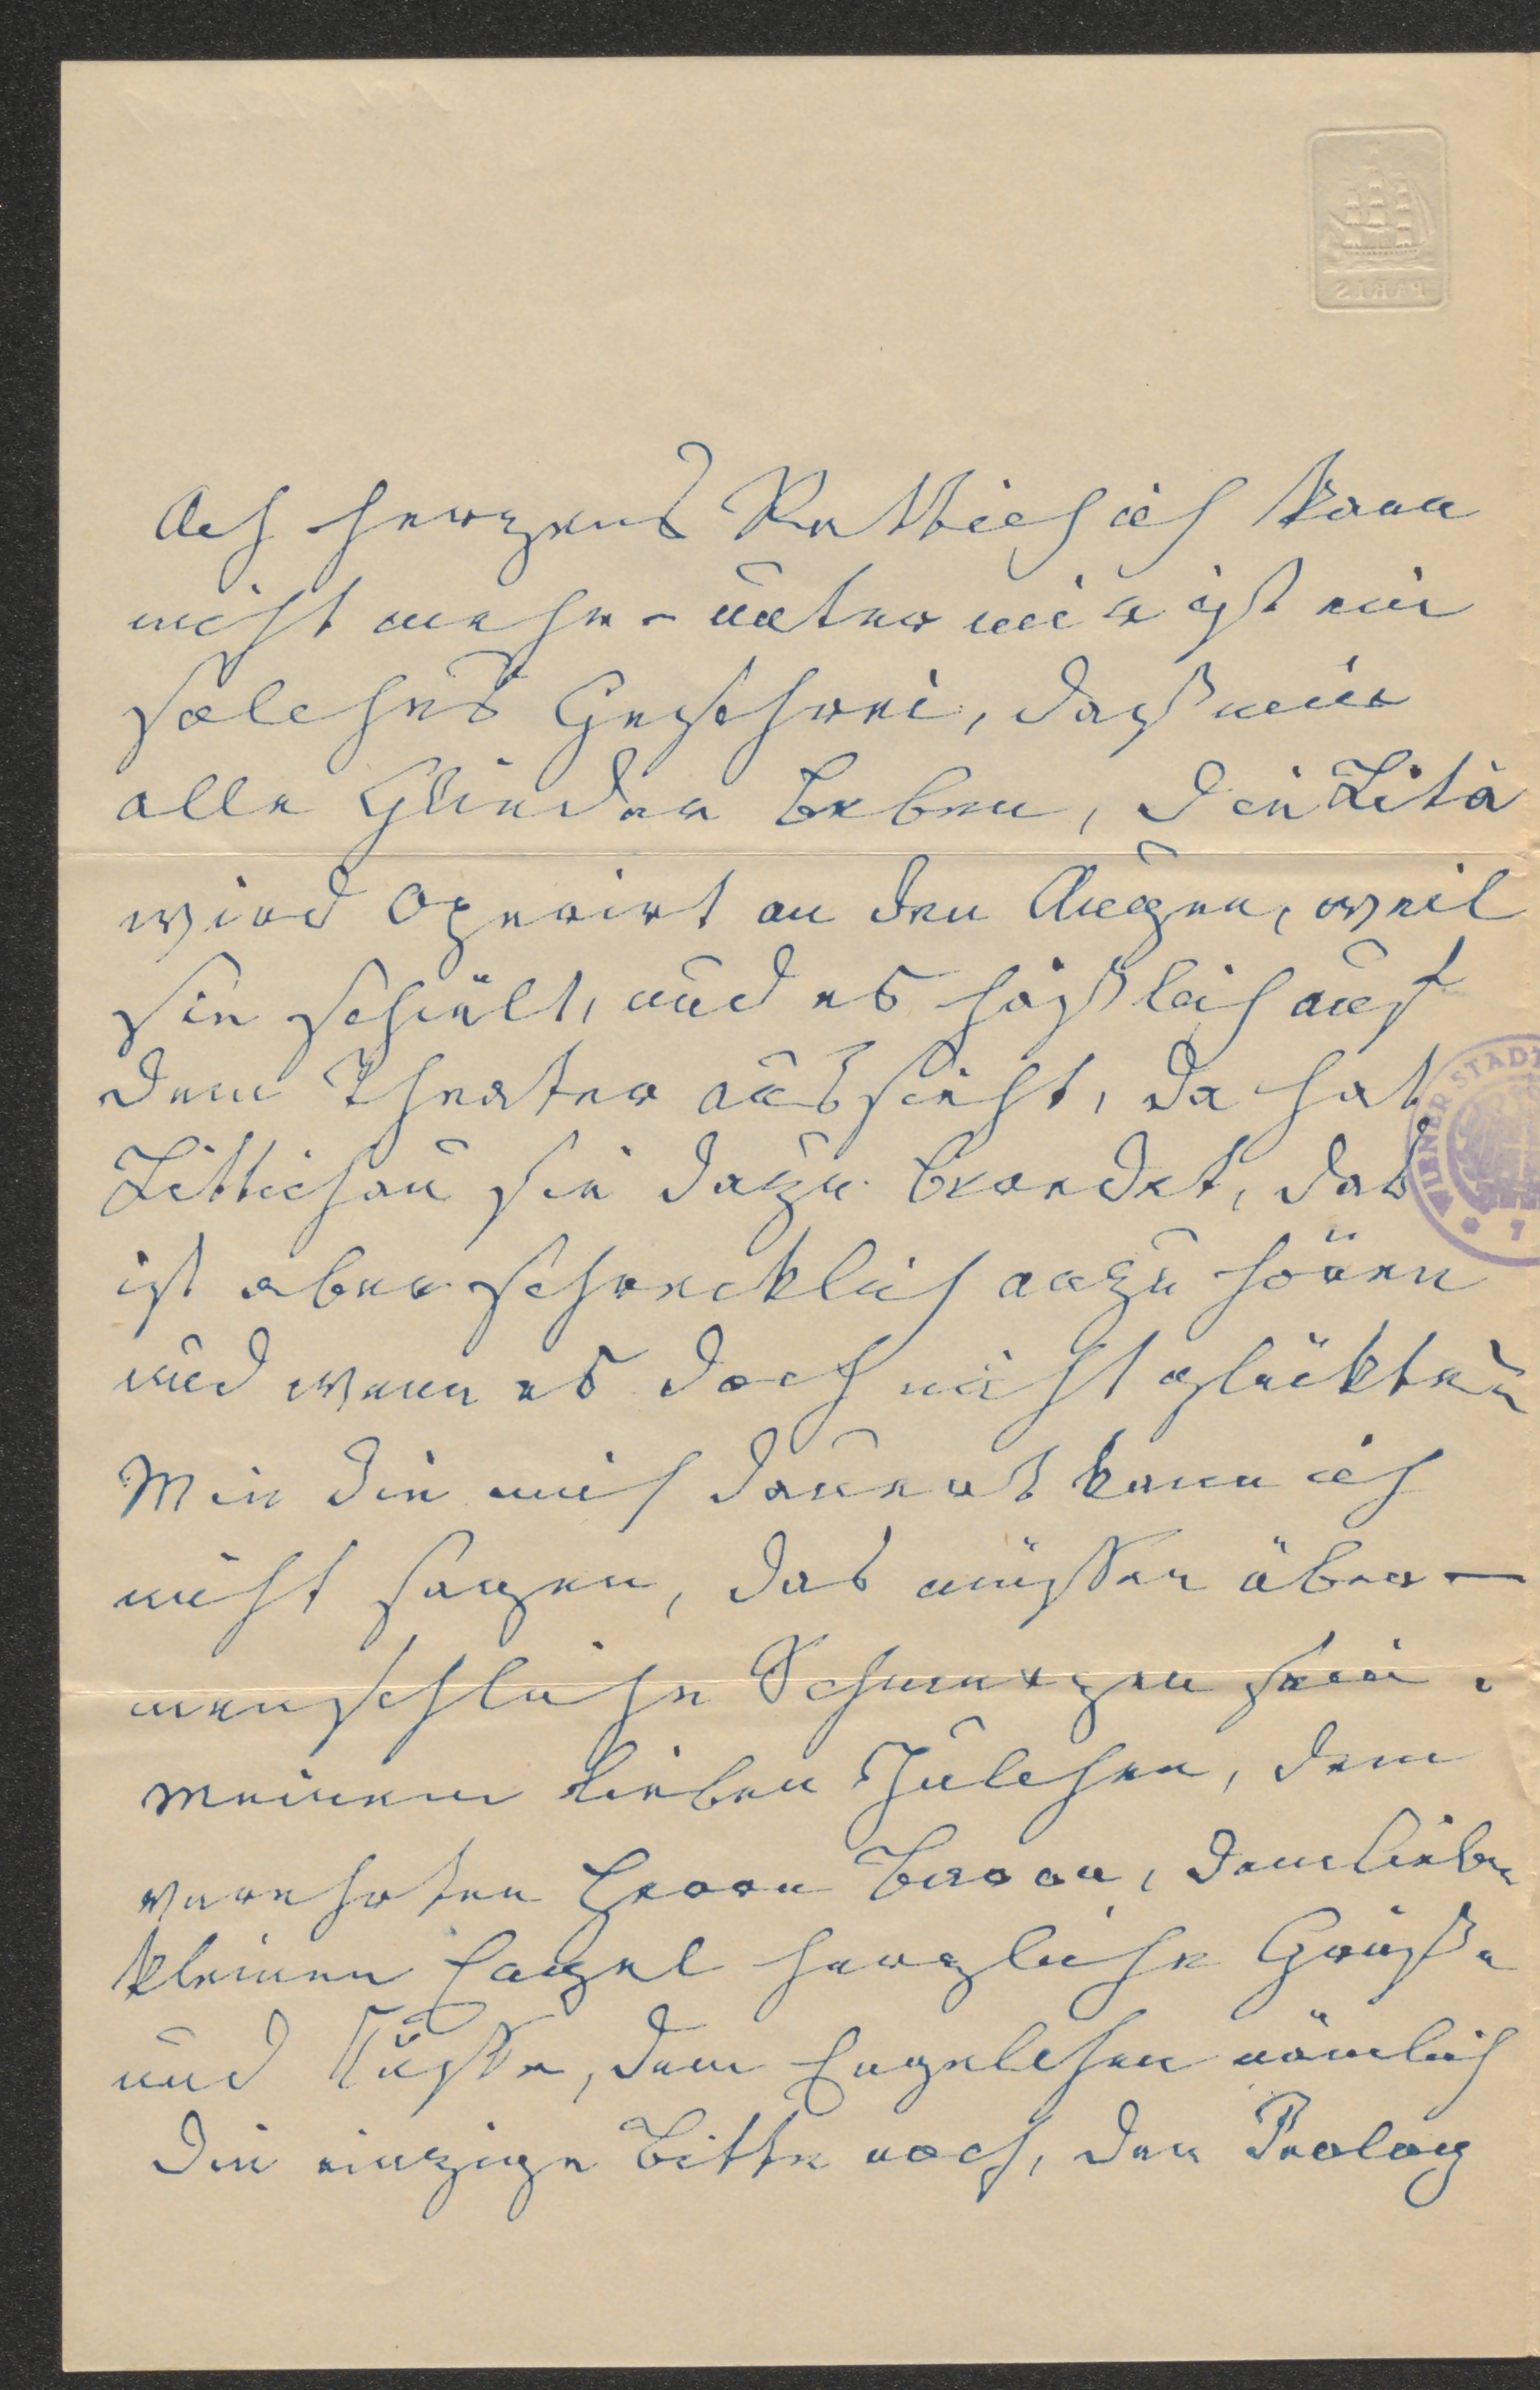 PARIS
Ach herzens Rettich ich kann
nicht mehr - unter mir ist ein
solches Geschrei, daß mir
alle Glieder beben, die Zita
wird operirt an den Augen, weil
sie schielt, und es häßlich auf
dem Theater aussieht, da hat
Lüttichau sie dazu beredet, das
ist aber schrecklich anzuhören
und wenn es doch nicht glückte
Wie die mich dauert kann ich
nicht sagen, das müssen über-
menschliche Schmerzen sein.
Meinem lieben Julchen, dem
verehrten Herrn Baron, dem lieben
kleinen Engel herzliche Grüße
und Küsse, dem Engelchen nämlich
Die einzige Bitte noch, den Prolog
WIENER STADT
7